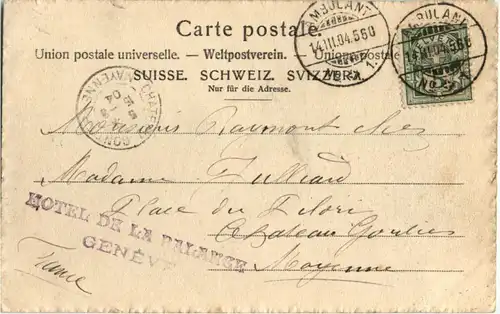 Carte postale.
Union postale universelle. — Weltpostverein. — Unione postale
SUISSE. SCHWEIZ. SVIZZERA.
Nur für die Adresse.
AMBULANT
14.III.04.560
No
AMBULANT
14.III.04.560
No
CHATEAU-GONTIER
MAYENNE
04
Monsieur Raymont chez
Madame Julliard
Place du
Chateau Gontier
Mayenne
HOTEL DE LA BALANCE
GENÈVE
France